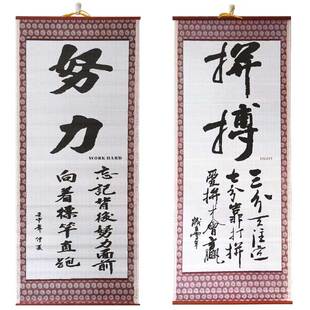 努力
WORK HARD
忘記背後努力面前
向着標竿直跑
拼搏
FIGHT
三分天注定
七分靠打拼
愛拼才會贏